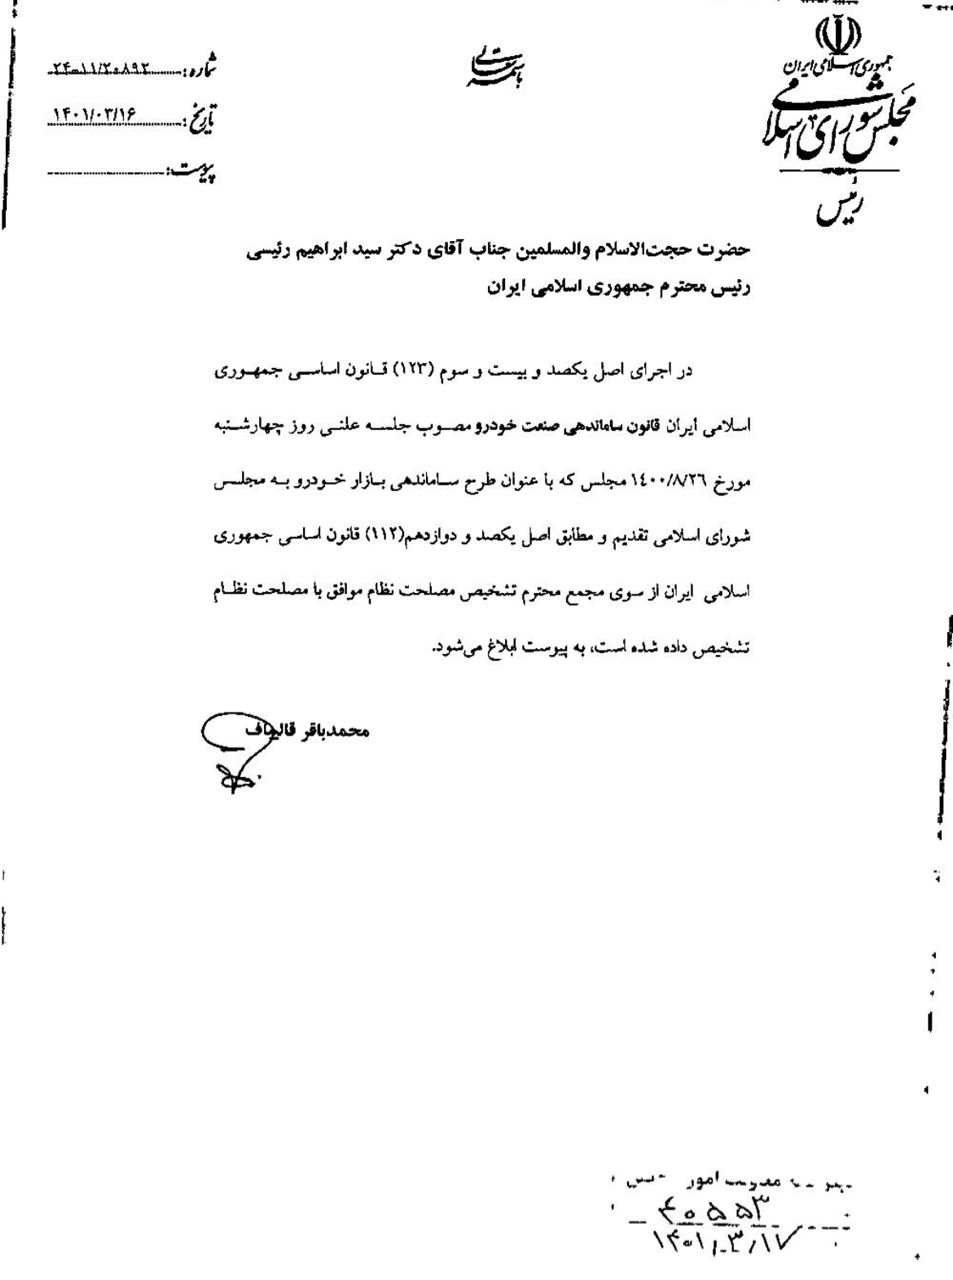 جمهوری اسلامی ایران
مجلس شورای اسلامی
رئیس
باسمه تعالی
شماره: ۲۴-۱۱/۲۰۸۹۲
تاریخ: ۱۴۰۱/۰۳/۱۶
پیوست:
حضرت حجت‌الاسلام والمسلمین جناب آقای دکتر سید ابراهیم رئیسی
رئیس محترم جمهوری اسلامی ایران
در اجرای اصل یکصد و بیست و سوم (۱۲۳) قانون اساسی جمهوری
اسلامی ایران قانون ساماندهی صنعت خودرو مصوب جلسه علنی روز چهارشنبه
مورخ ۱۴۰۰/۸/۲۶ مجلس که با عنوان طرح ساماندهی بازار خودرو به مجلس
شورای اسلامی تقدیم و مطابق اصل یکصد و دوازدهم(۱۱۲) قانون اساسی جمهوری
اسلامی ایران از سوی مجمع محترم تشخیص مصلحت نظام موافق با مصلحت نظام
تشخیص داده شده است، به پیوست ابلاغ می‌شود.
محمدباقر قالیباف
امور
۴۰۵۵۳
۱۴۰۱,۳,۱۷